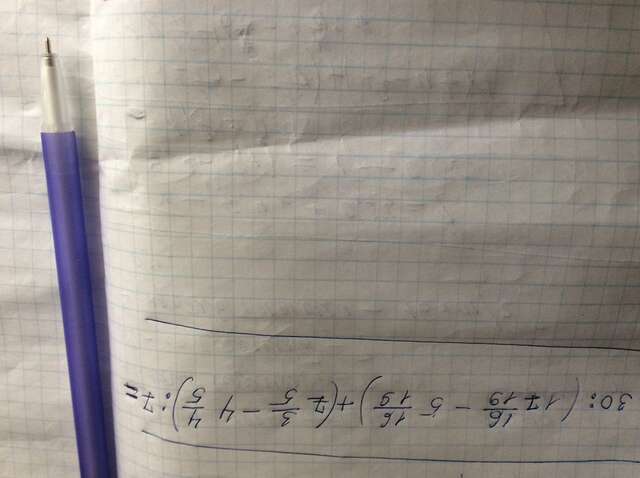 30 : (17 16/19 - 5 16/19) + (7 3/5 - 4 4/5) : 7 =